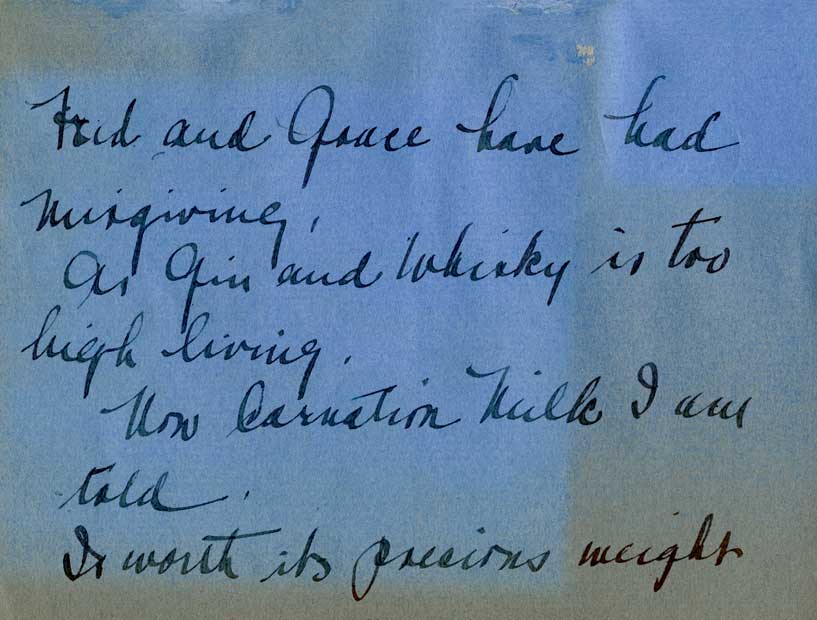 Fred and Grace have had
misgiving,
As Gin and Whisky is too
high living.
Now Carnation Milk I am
told.
Is worth its precious weight